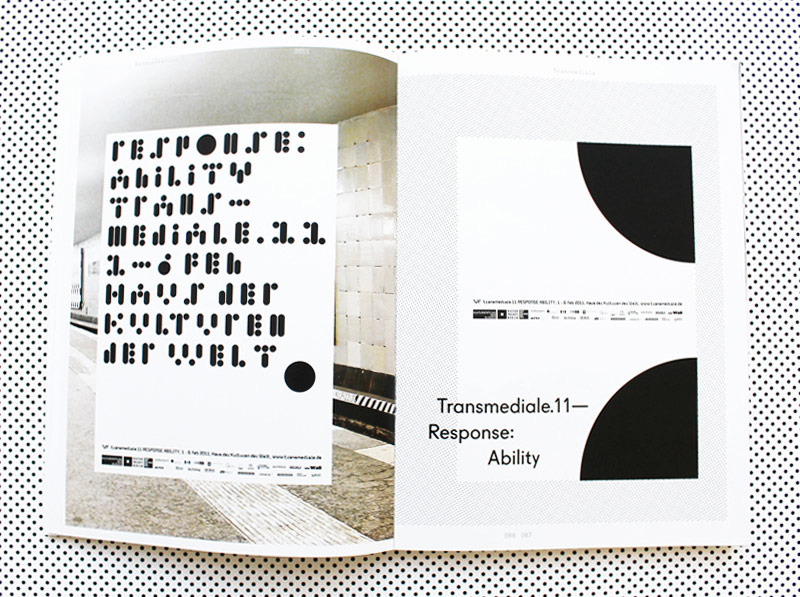 Transmediale
RESPONSE:
Ability
TRANS–
MEDIALE.11
1–6 FEB
HAUS DER
KULTUREN
DER WELT
transmediale.11 RESPONSE:ABILITY, 1 - 6 Feb 2011, Haus der Kulturen der Welt, www.transmediale.de
Wall
transmediale.11 RESPONSE:ABILITY, 1 - 6 Feb 2011, Haus der Kulturen der Welt, www.transmediale.de
Wall
Transmediale.11—
Response:
Ability
096 097